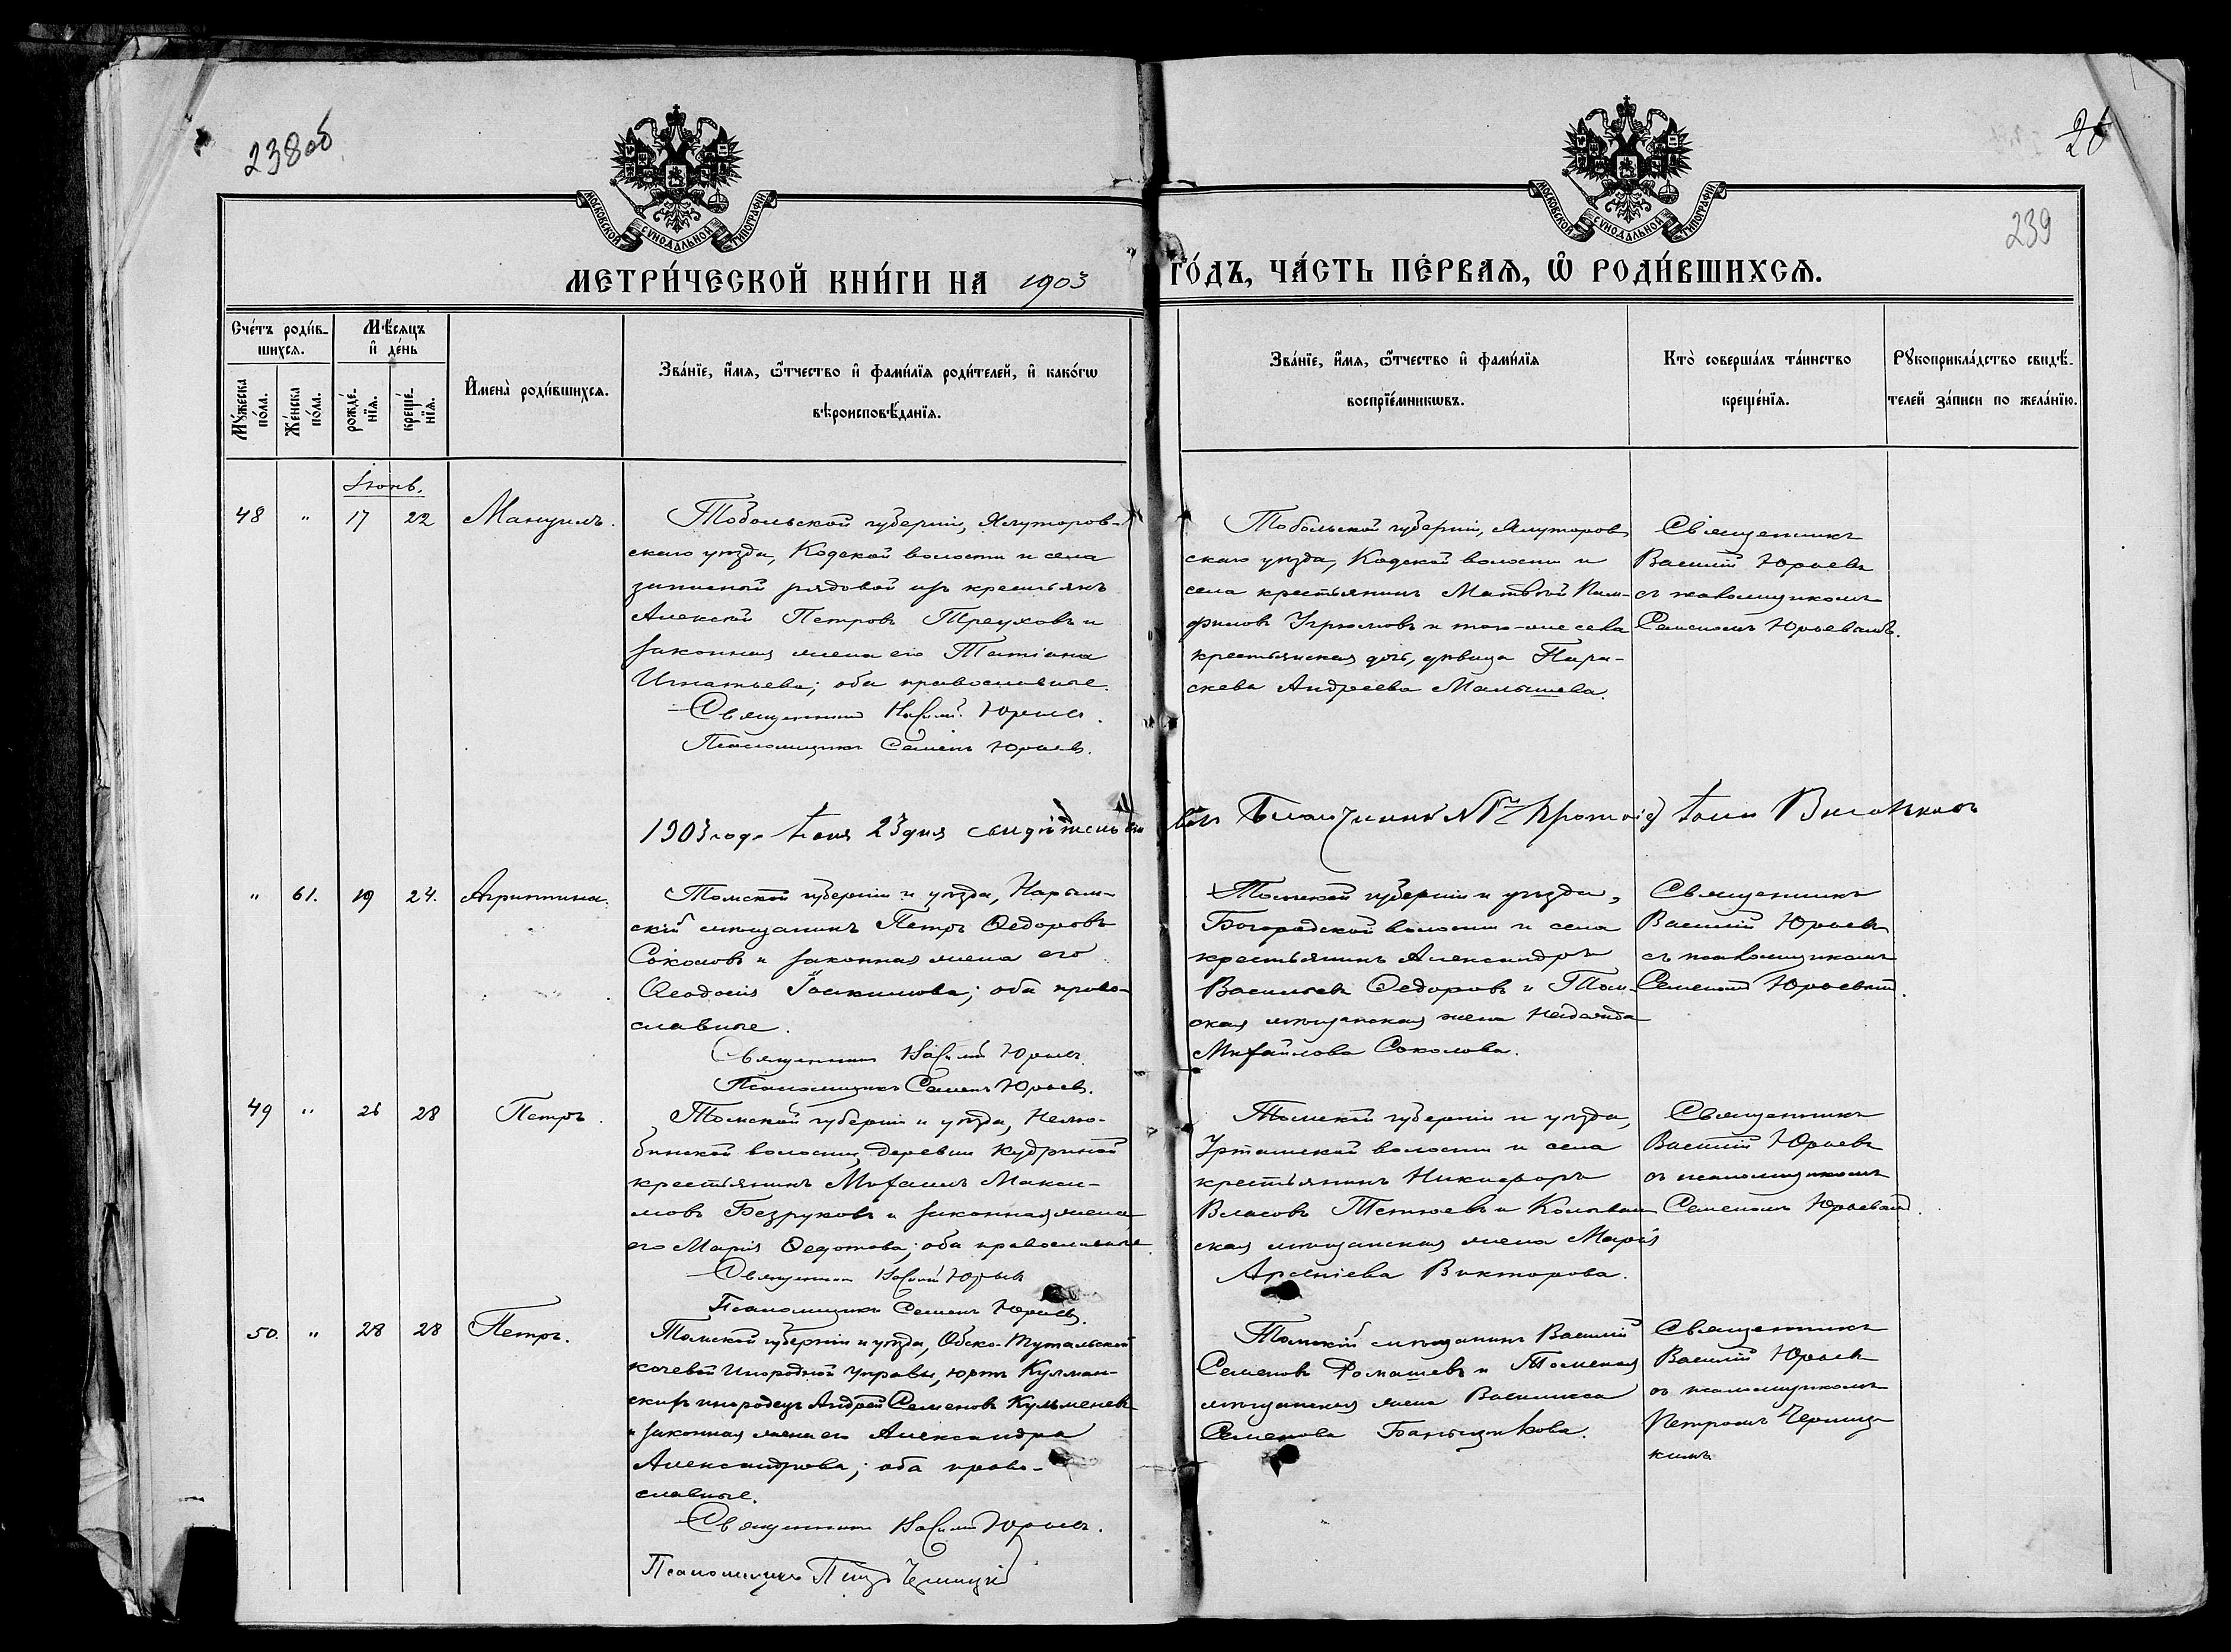 238об
26
239
МОСКОВСКОЙ СУНОДАЛЬНОЙ ТИПОГРАФІИ
МОСКОВСКОЙ СУНОДАЛЬНОЙ ТИПОГРАФІИ
МЕТРИ́ЧЕСКОЙ КНИ́ГИ НА 1903
ГО́ДЪ, ЧА́СТЬ ПЕ́РВАЯ, Ѡ РОДИ́ВШИХСЯ.
Сче́тъ роди́в-
шихся.
Мꙋ́жеска по́ла.
Же́нска по́ла.
Мѣ́сяцъ
и҆ де́нь
рожде́-
нїя.
креще́-
нїя.
И҆мена̀ роди́вшихся.
Зва́нїе, и҆́мя, ѻ҆́тчество и҆ фами́лїя роди́телей, и҆ како́гѡ
вѣроисповѣ́данїя.
Зва́нїе, и҆́мя, ѻ҆́тчество и҆ фами́лїя
воспрїе́мникѡвъ.
Кто̀ соверша́лъ та́инство
креще́нїя.
Рꙋкоприкла́дство свидѣ́-
телей за́писи по жела́нїю.
Іюнь.
48 " 17 22 Мануилъ.
Тобольской губерніи, Ялуторов-
скаго уѣзда, Кодской волости и села
запасной рядовой изъ крестьянъ
Алексѣй Петровъ Треуховъ и
законная жена его Татіана
Игнатьева; оба православные.
Священникъ Василій Юрьевъ.
Псаломщикъ Семенъ Юрьевъ.
Тобольской губерніи, Ялуторов
скаго уѣзда, Кодской волости и
села крестьянинъ Матвѣй Пам-
филовъ Угрюмовъ и того-же села
крестьянская дочь, дѣвица Пара-
скева Андреева Малышева.
Священникъ
Василій Юрьевъ
съ псаломщикомъ
Семеномъ Юрьевымъ.
1903 года Іюня 23 дня свидѣтельство
валъ Благочинный Протоіер Іоан
" 61. 19 24. Агриппина.
Томской губерніи и уѣзда, Нарым-
скій мѣщанинъ Петръ Ѳедоровъ
Соколовъ и законная жена его
Ѳеодосія Іоакимова; оба право-
славные.
Священникъ Василій Юрьевъ.
Псаломщикъ Семенъ Юрьевъ.
Томской губерніи и уѣзда,
Богородской волости и села
крестьянинъ Александръ
Васильевъ Ѳедоровъ и Том-
ская мѣщанская жена Надежда
Михайлова Соколова.
Священникъ
Василій Юрьевъ
съ псаломщикомъ
Семеномъ Юрьевымъ.
49 " 26 28 Петръ.
Томской губерніи и уѣзда, Нелю-
бинской волости, деревни Кудриной
крестьянинъ Михаилъ Макси-
мовъ Безруковъ и законная жена
его Марія Ѳедотова; оба православные.
Священникъ Василій Юрьевъ
Псаломщикъ Семенъ Юрьевъ.
Томской губерніи и уѣзда,
Уртамской волости и села
крестьянинъ Никифоръ
Власовъ Тетюевъ и Колыван
ская мѣщанская жена Марія
Арсеніева Викторова.
Священникъ
Василій Юрьевъ
съ псаломщикомъ
Семеномъ Юрьевымъ.
50. " 28 28 Петръ.
Томской губерніи и уѣзда, Обско-Тутальской
кочевой Инородной Управы, юртъ Кулман-
скихъ инородецъ Андрей Семеновъ Кульменевъ
и законная жена его Александра
Александрова; оба право-
славные.
Священникъ Василій Юрьевъ.
Псаломщикъ Петръ Черницкій
Томскій мѣщанинъ Василій
Семеновъ Ромашевъ и Томская
мѣщанская жена Василиса
Семенова Банщикова.
Священникъ
Василій Юрьевъ
съ псаломщикомъ
Петромъ Черниц-
кимъ